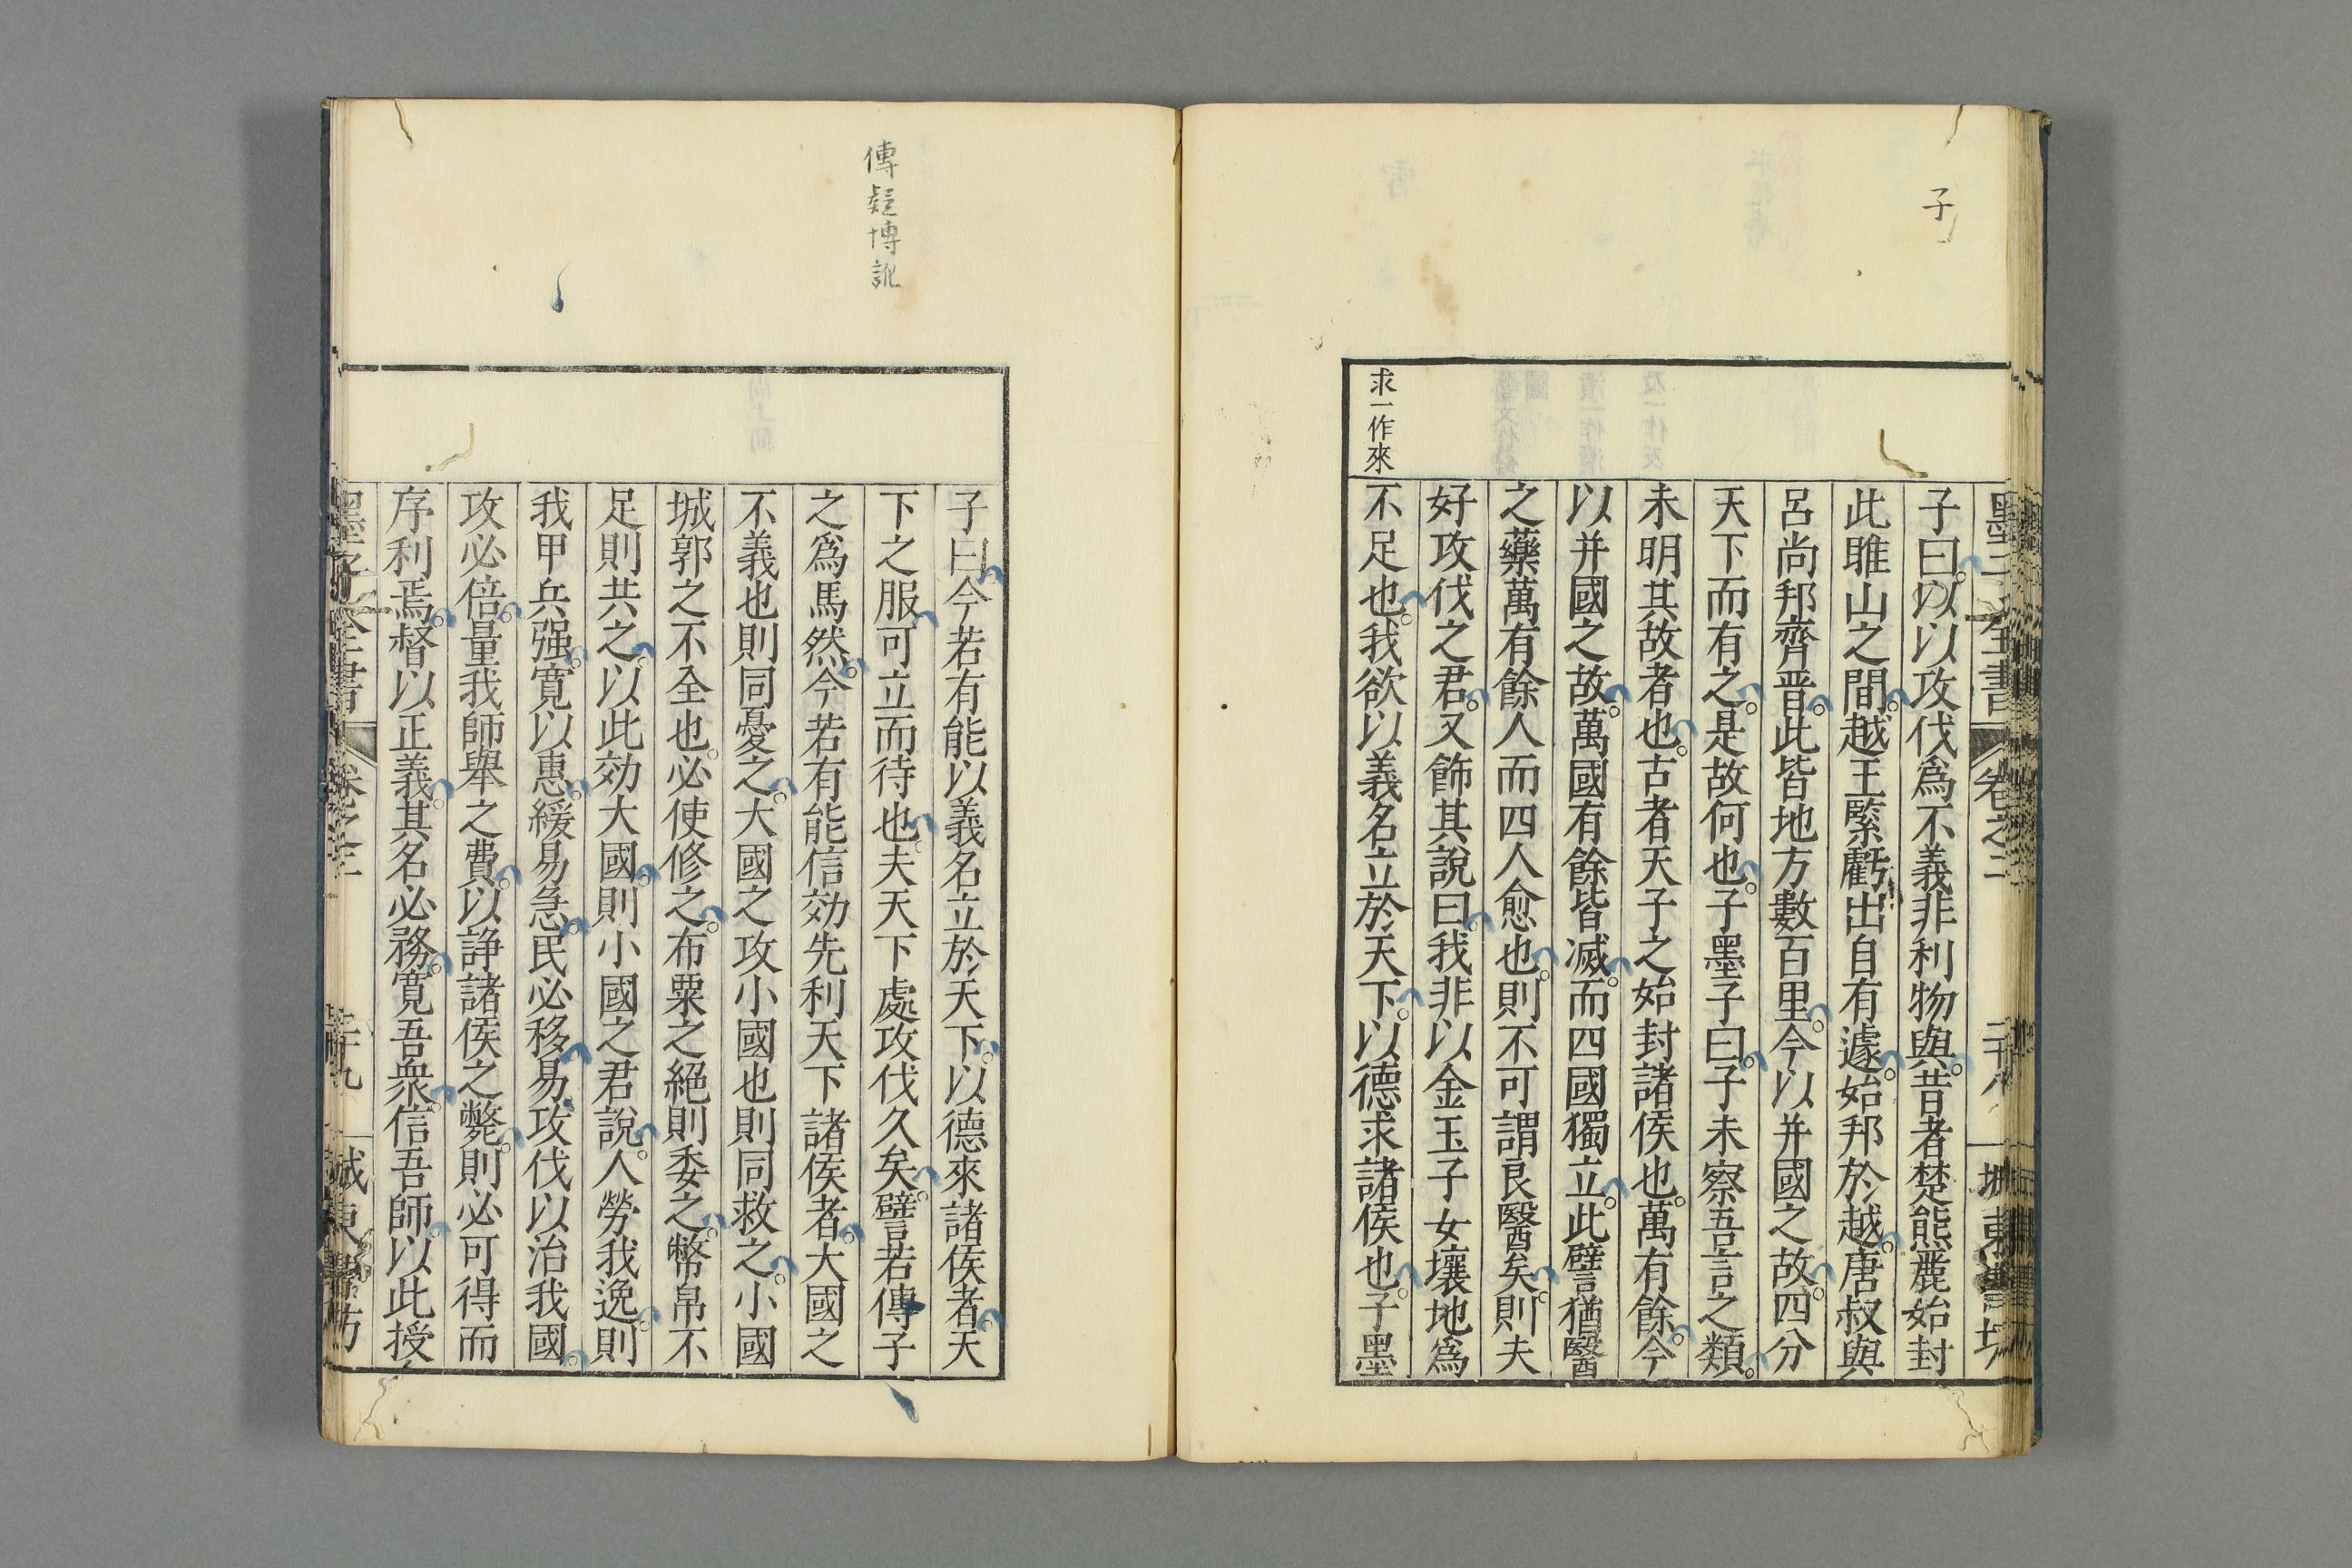 子
子曰以以攻伐爲不義非利物與昔者楚熊麗始封
此雎山之間越王緊虧出自有遽始邦於越唐叔與
呂尚邦齊晋此皆地方數百里今以并國之故四分
天下而有之是故何也子墨子曰子未察吾言之類
未明其故者也古者天子之始封諸侯也萬有餘今
以并國之故萬國有餘皆滅而四國獨立此譬猶醫
之藥萬有餘人而四人愈也則不可謂良醫矣則夫
好攻伐之君又飾其說曰我非以金玉子女壤地爲
求一作來
不足也我欲以義名立於天下以德求諸侯也子墨
傳疑博訛
子曰今若有能以義名立於天下以德來諸侯者天
下之服可立而待也夫天下處攻伐久矣譬若傳子
之爲馬然今若有能信効先利天下諸侯者大國之
不義也則同憂之大國之攻小國也則同救之小國
城郭之不全也必使修之布粟之絕則委之幣帛不
足則共之以此効大國則小國之君說人勞我逸則
我甲兵强寬以惠緩易急民必移易攻伐以治我國
攻必倍量我師舉之費以諍諸侯之斃則必可得而
序利焉督以正義其名必務寬吾衆信吾師以此授